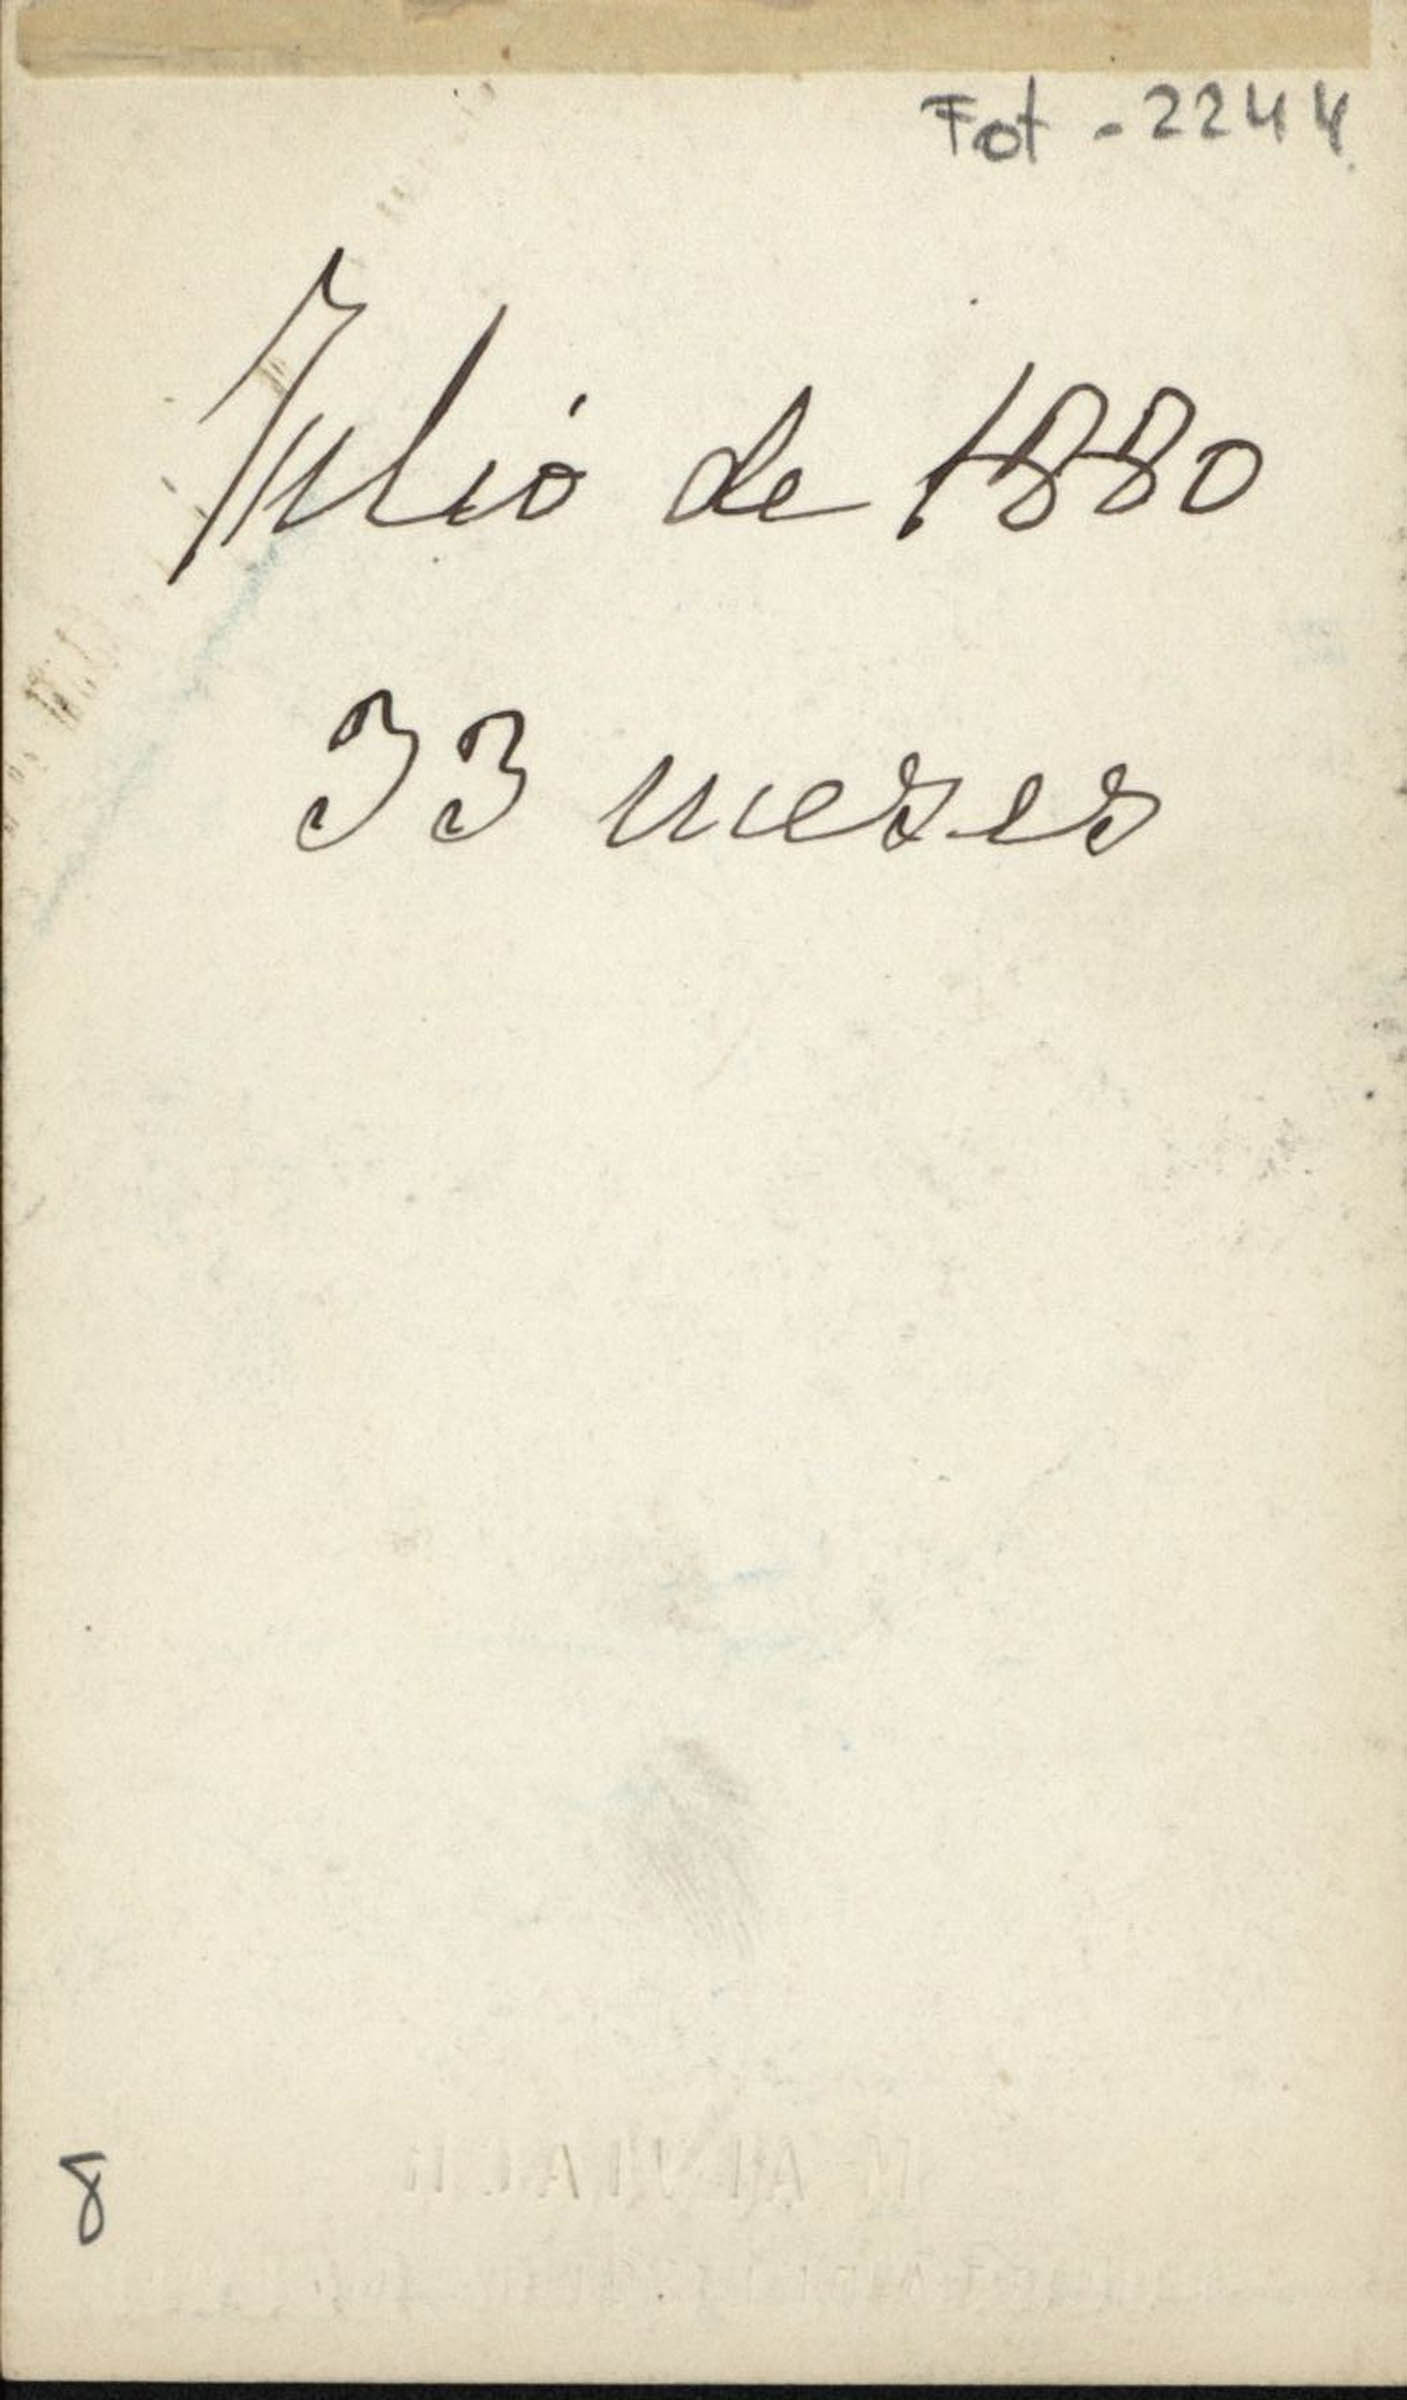 Fot - 2244
Julio de 1880
33 meses
8